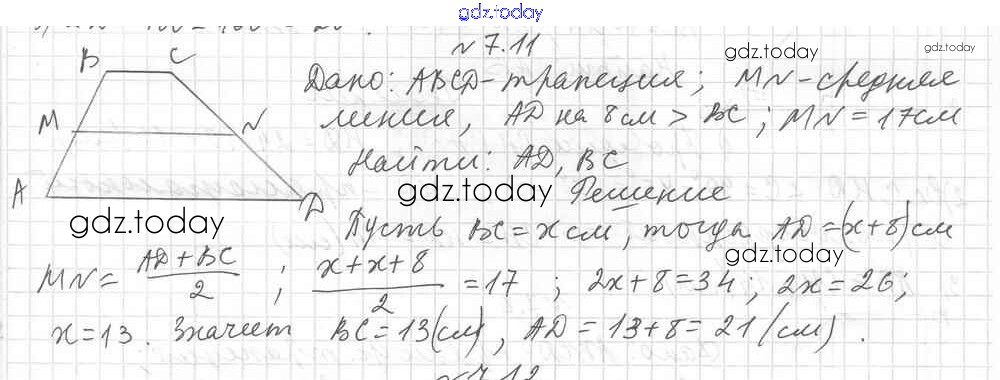 gdz.today
№ 7.11
gdz.today
gdz.today
B C
Дано: ABCD-трапеция; MN-средняя
M N
линия, AD на 8 см > BC; MN = 17см
gdz.today
Найти: AD, BC
A D
gdz.today
Решение
gdz.today
Пусть BC = x см, тогда AD = (x+8) см
gdz.today
MN = (AD + BC)/2 ; (x+x+8)/2 = 17 ; 2x+8=34; 2x=26;
x=13. Значит BC = 13(см), AD = 13+8 = 21 (см).